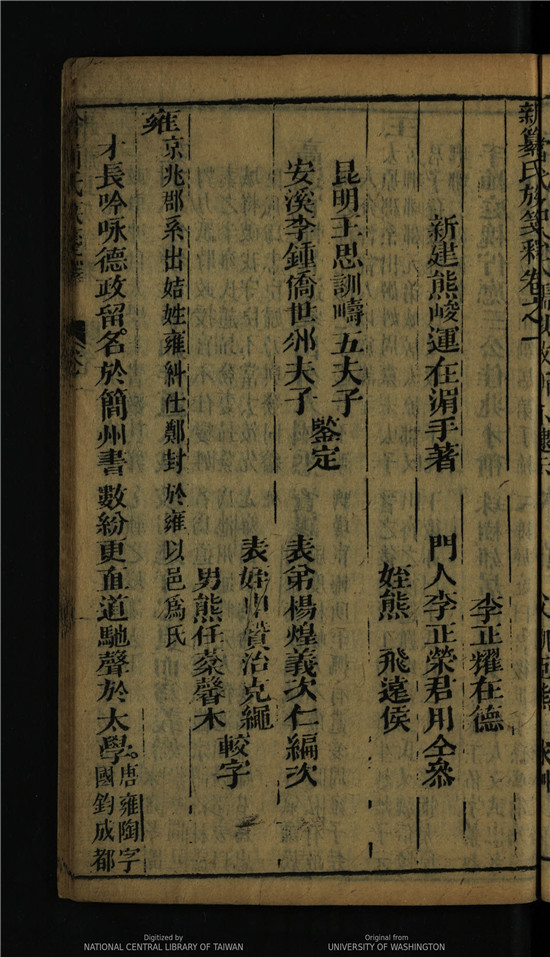 新纂氏族箋釋卷之一
新建熊峻運在湄手著
李正耀在德
門人李正榮君用仝叅
姪熊 飛遠侯
昆明王思訓疇五夫子
安溪李鍾僑世邠夫子
鑒定
表弟楊煌義次仁編次
表姪申贊治克繩
男熊任蒙馨木
較字
雍 京兆郡系出姞姓雍糾仕鄭封於雍以邑爲氏
才長吟咏德政留名於簡州書數紛更直道馳聲於太學
唐雍陶字
國鈞成都
Digitized by
NATIONAL CENTRAL LIBRARY OF TAIWAN
Original from
UNIVERSITY OF WASHINGTON